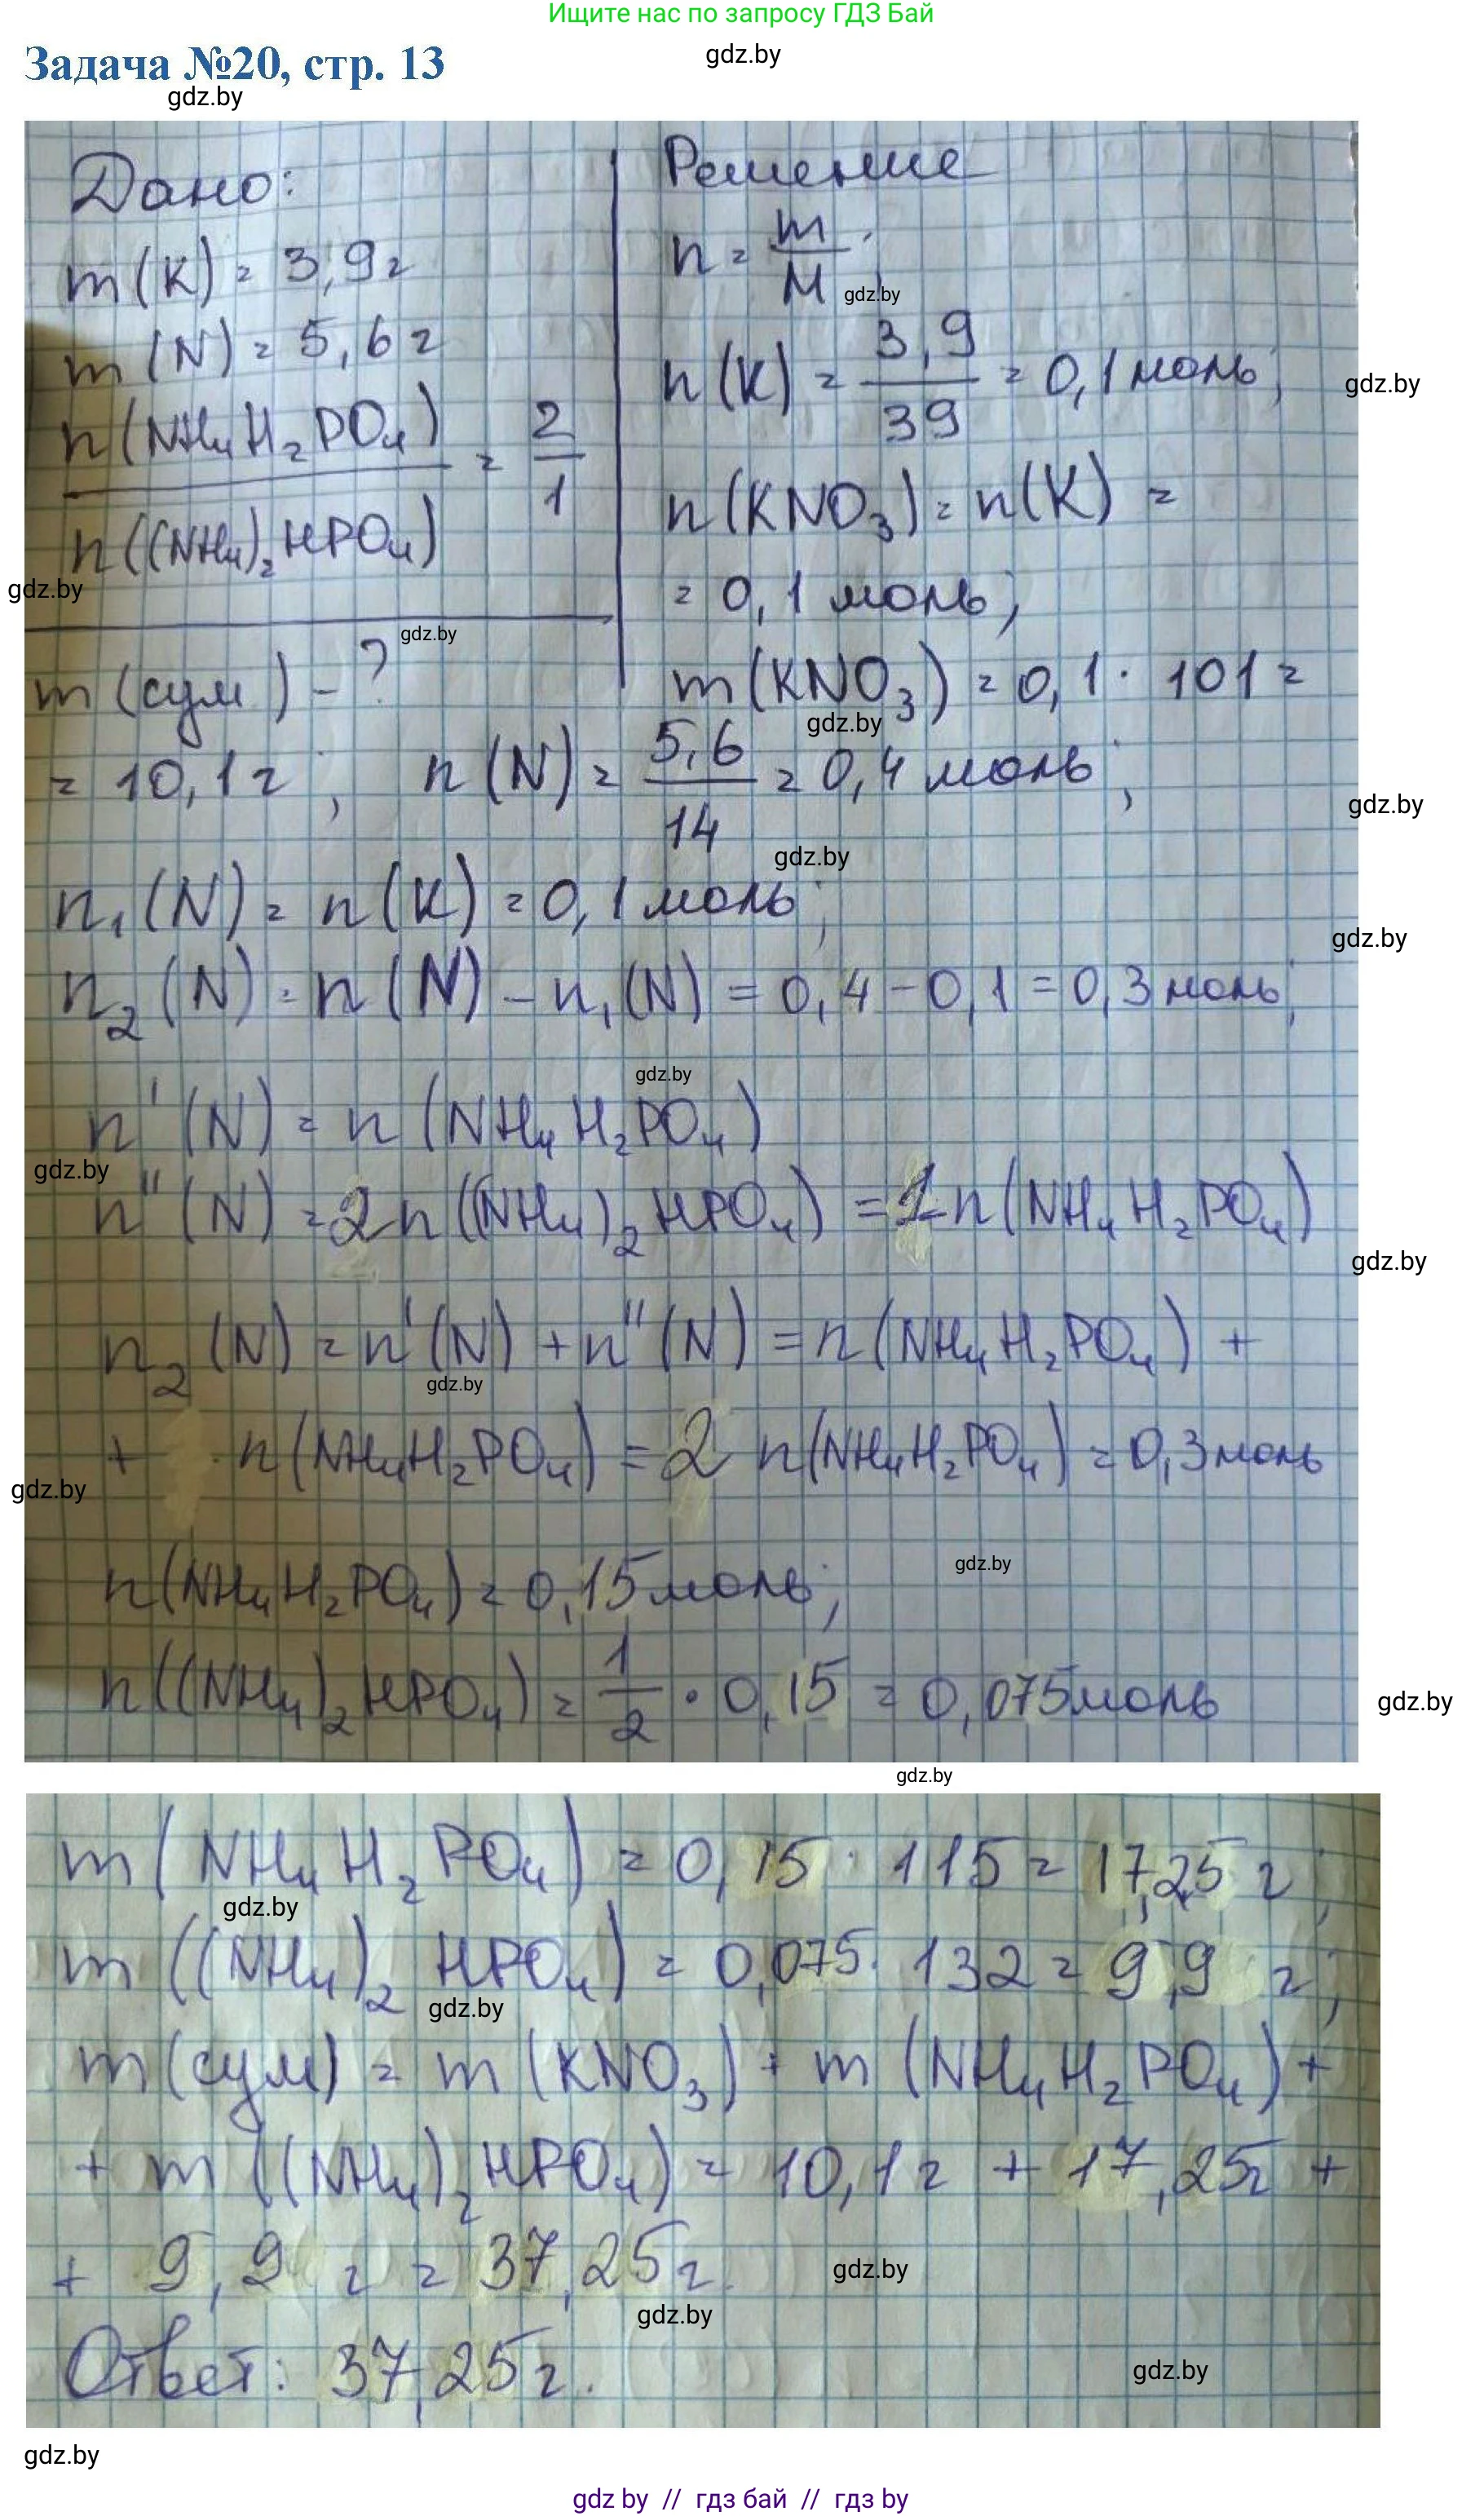 Ищите нас по запросу ГДЗ Бай
Задача №20, стр. 13
gdz.by
gdz.by
Дано:
m(K) = 3,9г
m(N) = 5,6г
n(NH₄H₂PO₄) / n((NH₄)₂HPO₄) = 2/1
gdz.by
gdz.by
m(сум) - ?
Решение
n = m/M;
gdz.by
n(K) = 3,9/39 = 0,1 моль;
gdz.by
n(KNO₃) = n(K) =
= 0,1 моль;
m(KNO₃) = 0,1 · 101 =
gdz.by
= 10,1г; n(N) = 5,6/14 = 0,4 моль;
gdz.by
gdz.by
n₁(N) = n(K) = 0,1 моль;
gdz.by
n₂(N) = n(N) - n₁(N) = 0,4 - 0,1 = 0,3 моль;
gdz.by
n'(N) = n(NH₄H₂PO₄)
gdz.by
n''(N) = 2n((NH₄)₂HPO₄) = 1 n(NH₄H₂PO₄)
gdz.by
n₂(N) = n'(N) + n''(N) = n(NH₄H₂PO₄) +
gdz.by
+ · n(NH₄H₂PO₄) = 2 n(NH₄H₂PO₄) = 0,3 моль
gdz.by
gdz.by
n(NH₄H₂PO₄) = 0,15 моль;
n((NH₄)₂HPO₄) = 1/2 · 0,15 = 0,075 моль
gdz.by
gdz.by
m(NH₄H₂PO₄) = 0,15 · 115 = 17,25 г;
gdz.by
m((NH₄)₂HPO₄) = 0,075 · 132 = 9,9 г;
gdz.by
m(сум) = m(KNO₃) + m(NH₄H₂PO₄) +
+ m((NH₄)₂HPO₄) = 10,1г + 17,25г +
+ 9,9 г = 37,25г.
gdz.by
gdz.by
Ответ: 37,25г.
gdz.by
gdz.by
gdz by // гдз бай // гдз by